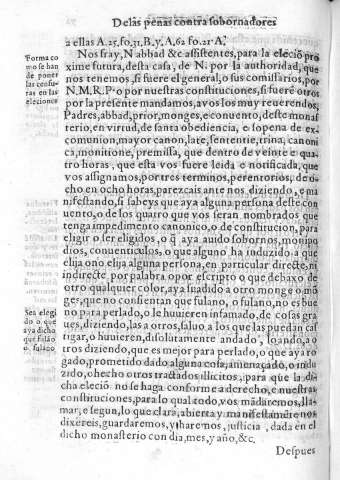 De las penas contra sobornadores
a ellas A.25,fo,31,B,y,A,62 fo.21.A,
Nos fray, N abbad & c assistentes, para la eleció pro
xime futura, desta casa, de N. por la authoridad, que
nos tenemos, si fuere el general, o sus comissarios, por
N.M.R.P. o por nuestras constituciones, si fuere otros
por la presente mandamos, a vos los muy reuerendos,
Padres, abbad, prior, monges, e conuento, deste monas
terio, en virtud, de santa obediencia, e so pena de ex
comunion, mayor canon, late, sententie, trina, canoni
ca, monitione, premissa, que dentro de veinte e qua
tro horas, que esta vos fuere leida e notificada, que
vos assignamos, por tres terminos, perentorios, de o-
cho en ocho horas, parezcais ante nos diziendo, e ma
nifestando, si sabeys que aya alguna persona deste con
uento, o de los quatro que vos seran nombrados que
tenga impedimento canonico, o de constitucion, para
eligir o ser eligidos, o q̃ aya auido sobornos, monipo
dios, conuenticulos, o que alguno ha induzido a que
elija o no elija alguna persona, en particular directe, ni
indirecte, por palabra o por escripto o que debaxo de
otro qualquier color, aya suadido a otro monge o mó
ges, que no consientan que fulano, o fulano, no es bue
no para perlado, o le huuieren infamado, de cosas gra
ues, diziendo, las a otros, saluo a los que las puedan cas
tigar, o huuieren, disolutamente andado, loando, a o
tros diziendo, que es mejor para perlado, o que aya ro
gado, prometido dado alguna cosa, amenaçado, o in du
zido, o hecho otros tractados illicitos, para que la di-
cha eleció no se haga conforme a derecho, e nuestras
constituciones, para lo qual todo, vos mádaremos, lla-
mar, e segun, lo que clara, abierta y manifestaméte nos
dixereis, guardaremos, y haremos, justicia, dada en el
dicho monasterio con dia, mes, y año, &c.
Despues
Forma co
mo se han
de poner
las censu-
ras en las
elecciones
Sea elegi
do o que
aya dicho
que fulão
o. fulano.